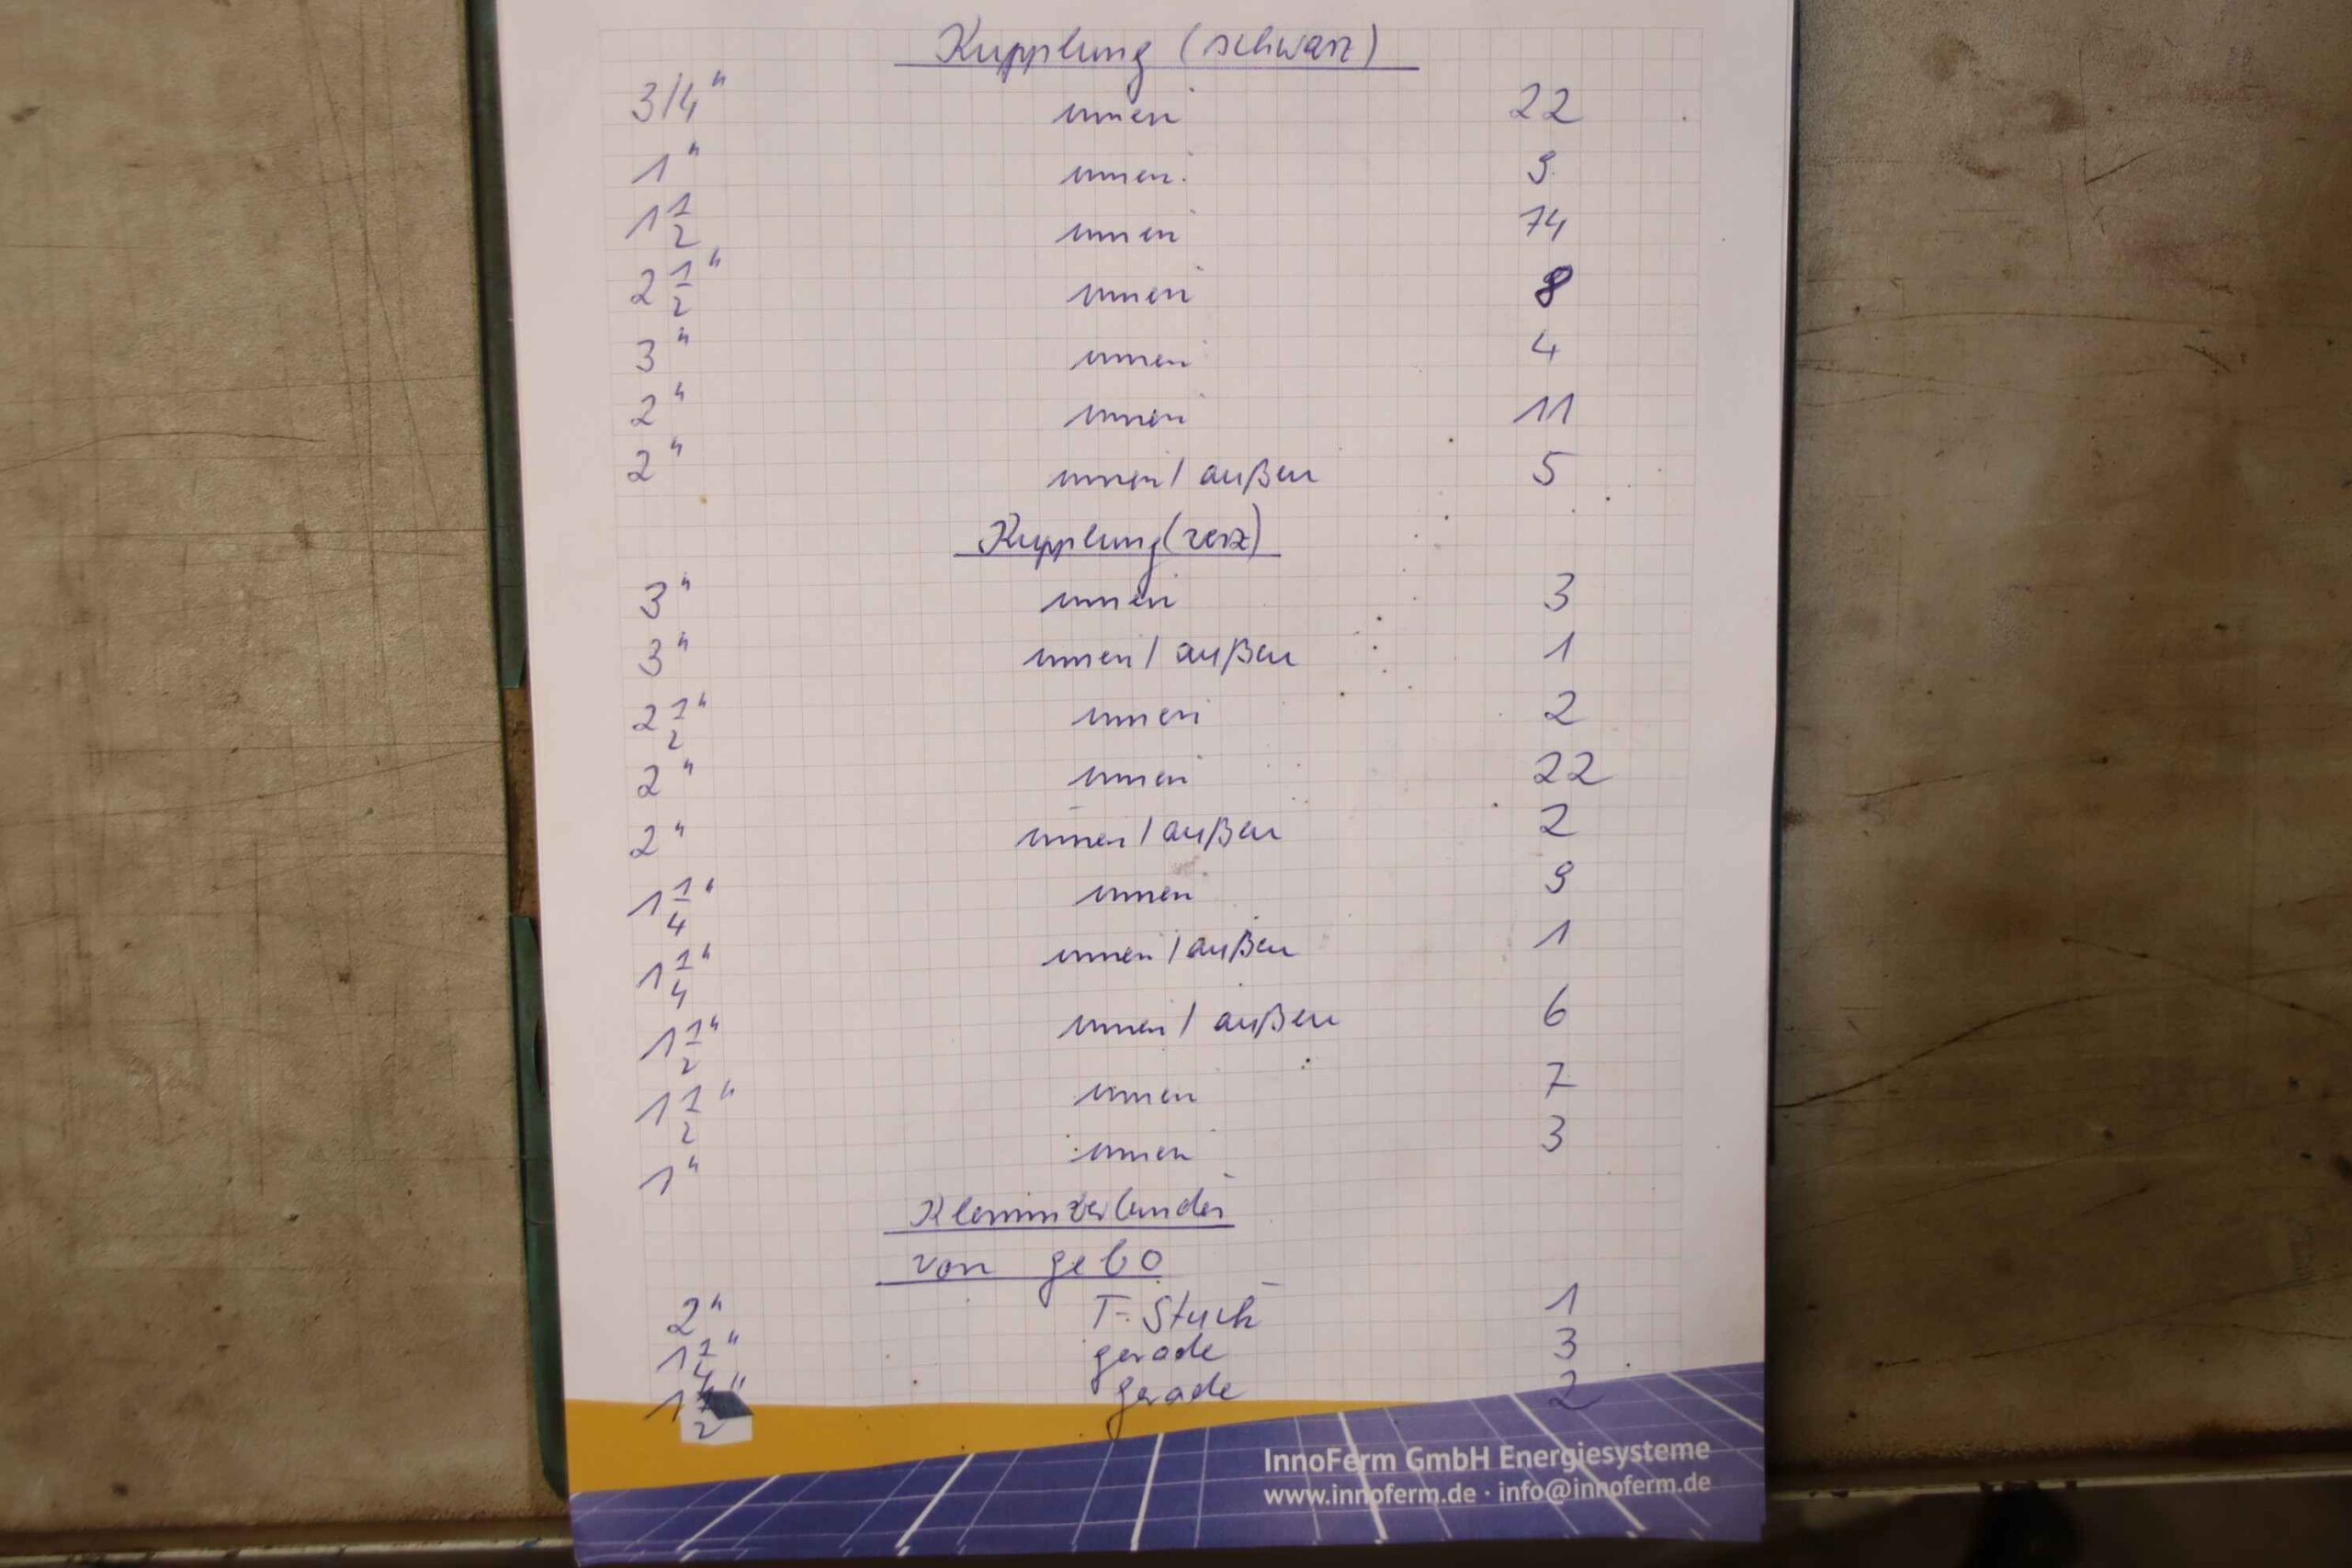 Kupplung (schwarz)
3/4" innen 22
1" innen 9
1 1/2 innen 14
2 1/2" innen 8
3" innen 4
2" innen 11
2" innen / außen 5
Kupplung (verz)
3" innen 3
3" innen / außen 1
2 1/2" innen 2
2" innen 22
2" innen / außen 2
1 1/4" innen 9
1 1/4" innen / außen 1
1 1/2" innen / außen 6
1 1/2" innen 7
1" innen 3
Klemmverbinder
von gebo
2" T-Stück 1
1 1/4" gerade 3
1 1/2" gerade 2
InnoFerm GmbH Energiesysteme
www.innoferm.de · info@innoferm.de